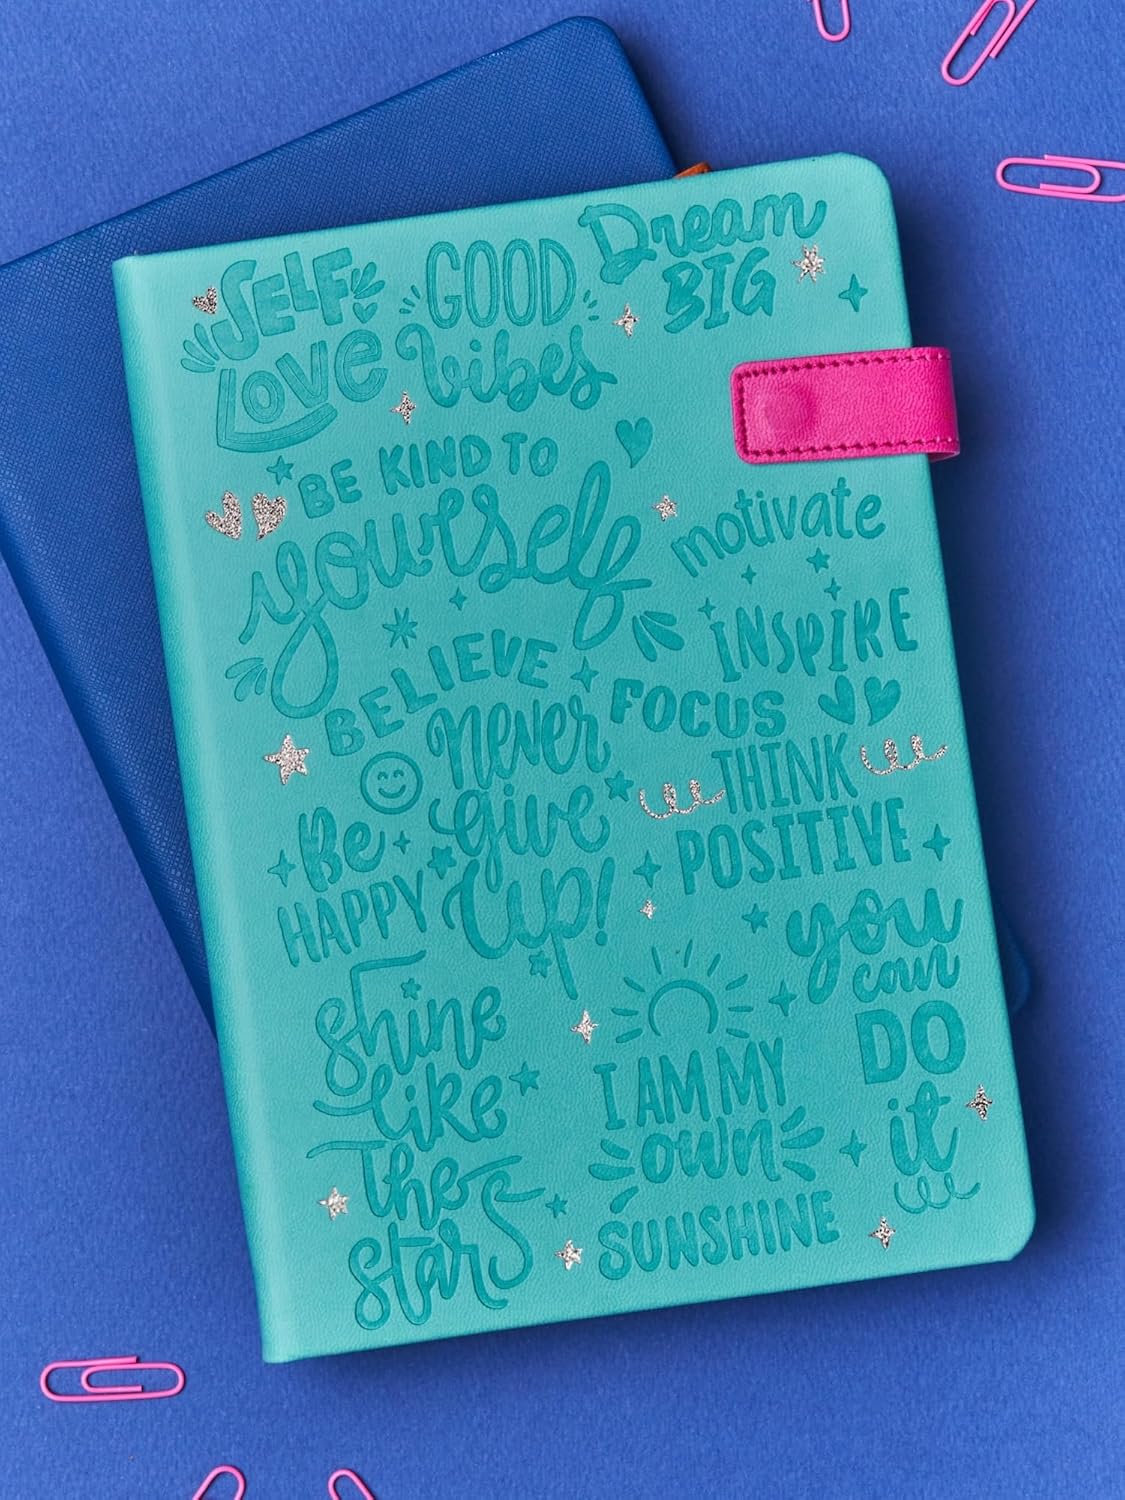 SELF
LOVE
GOOD
Vibes
Dream
BIG
BE KIND TO
yourself
motivate
INSPIRE
BELIEVE
FOCUS
Never
give
Up!
THINK
POSITIVE
Be
HAPPY
you
can
DO
it
Shine
like
The
StarS
I AM MY
own
SUNSHINE